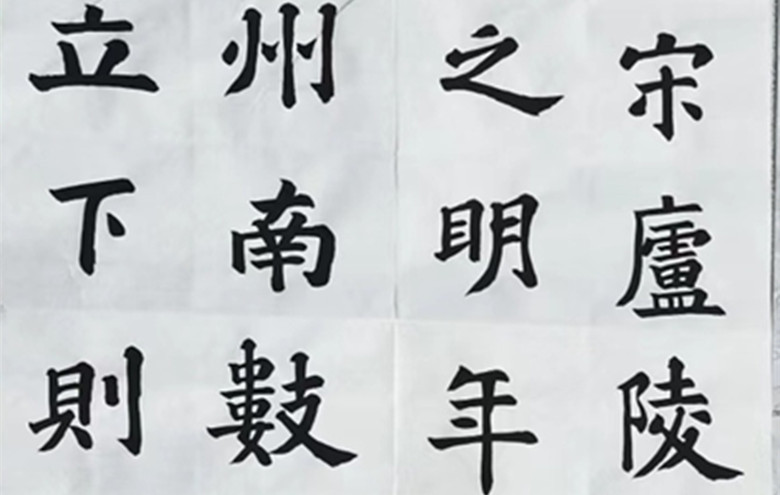 宋廬陵
之明年
州南數
立下則